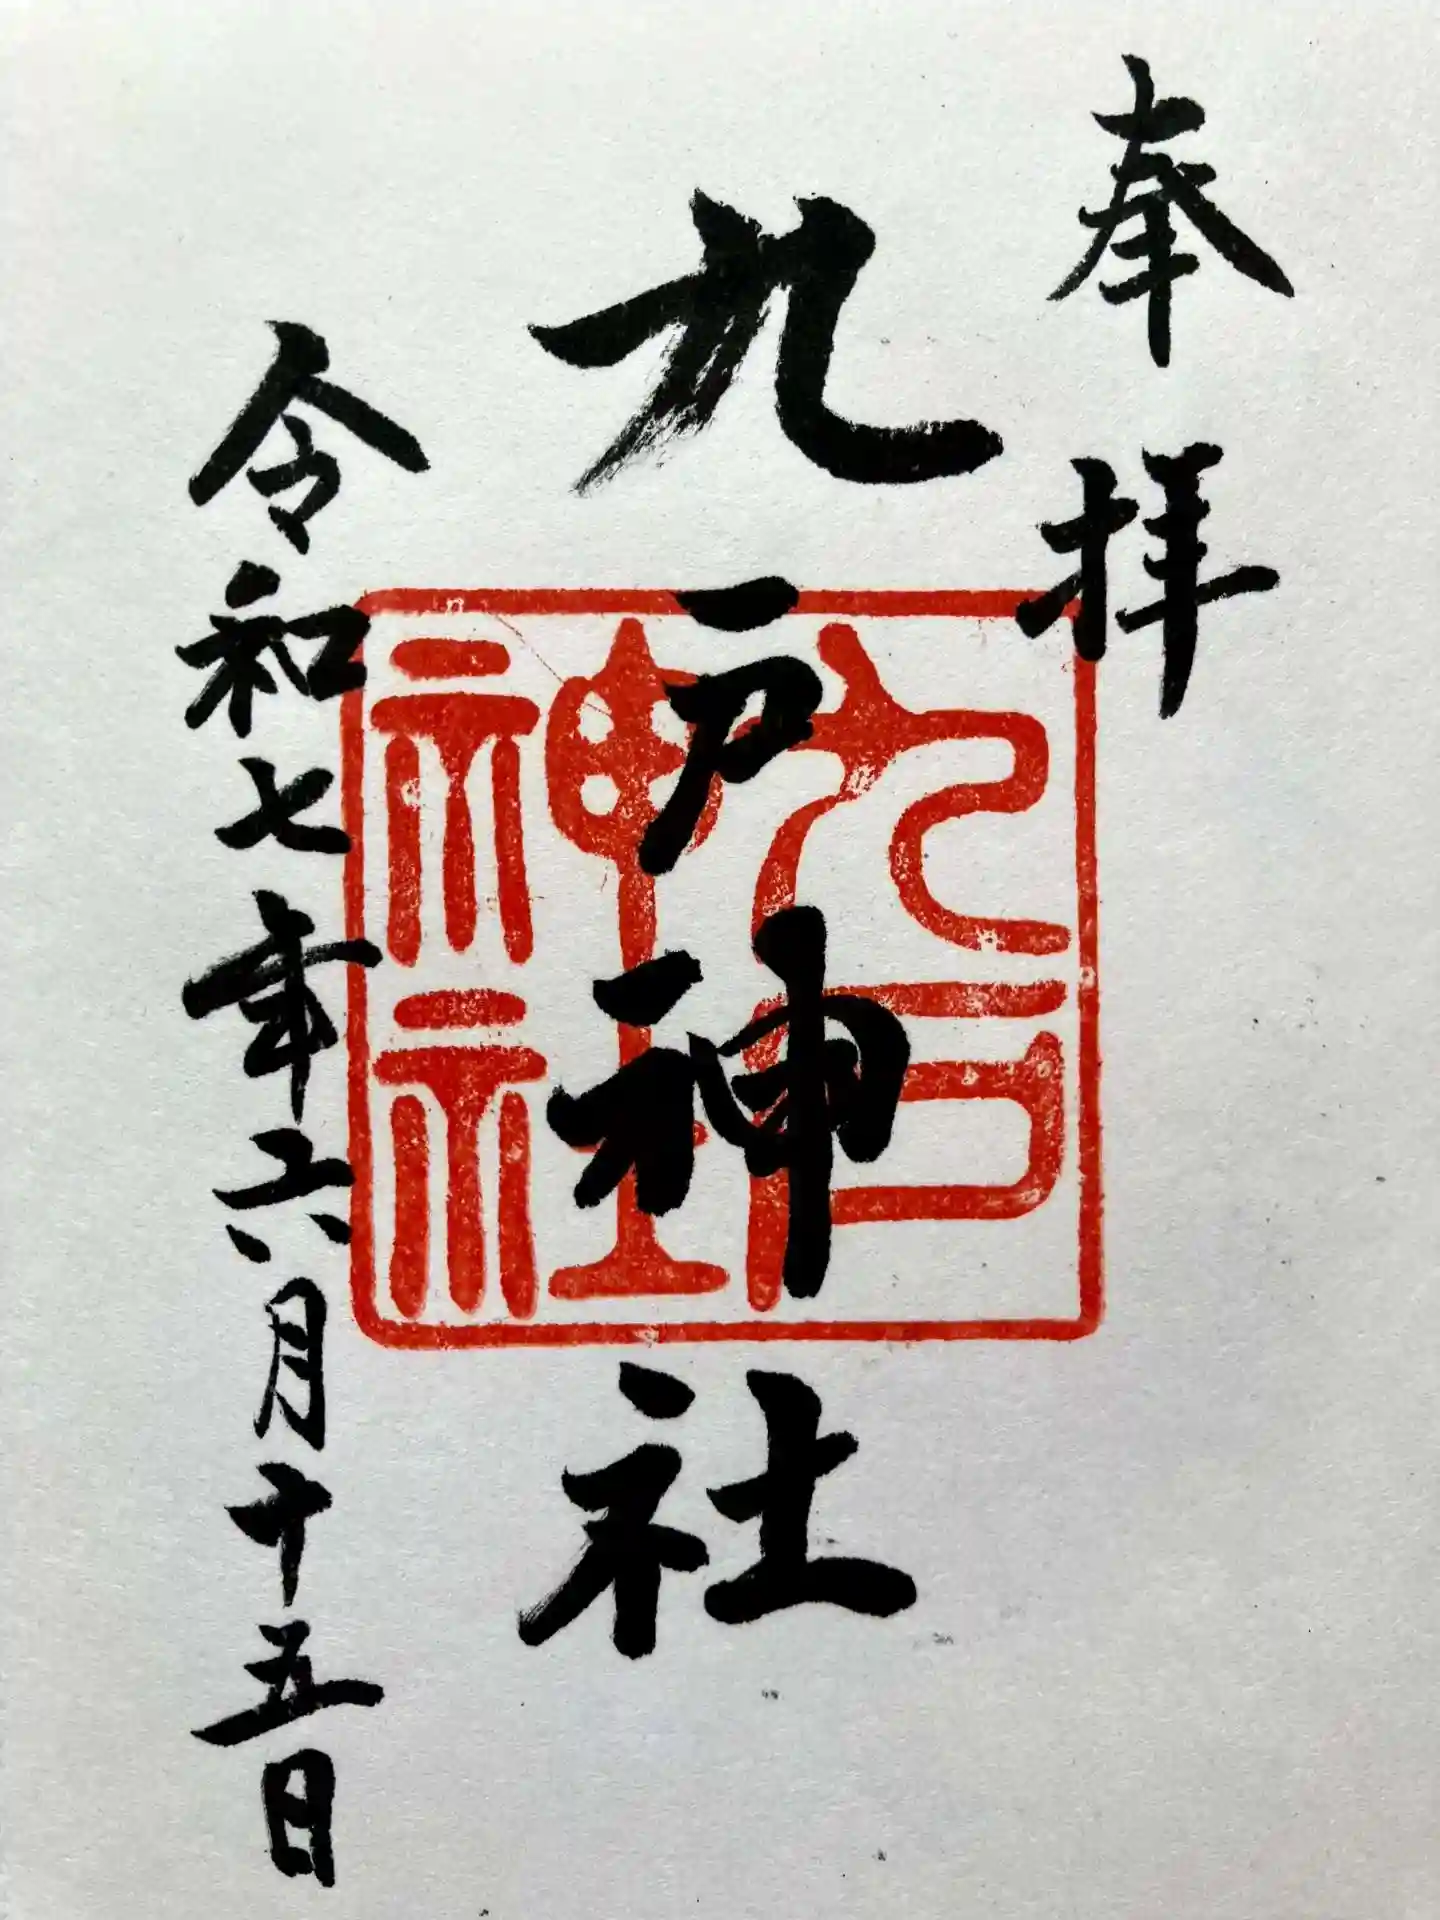 奉拝
九戸神社
九戸神社
令和七年六月十五日